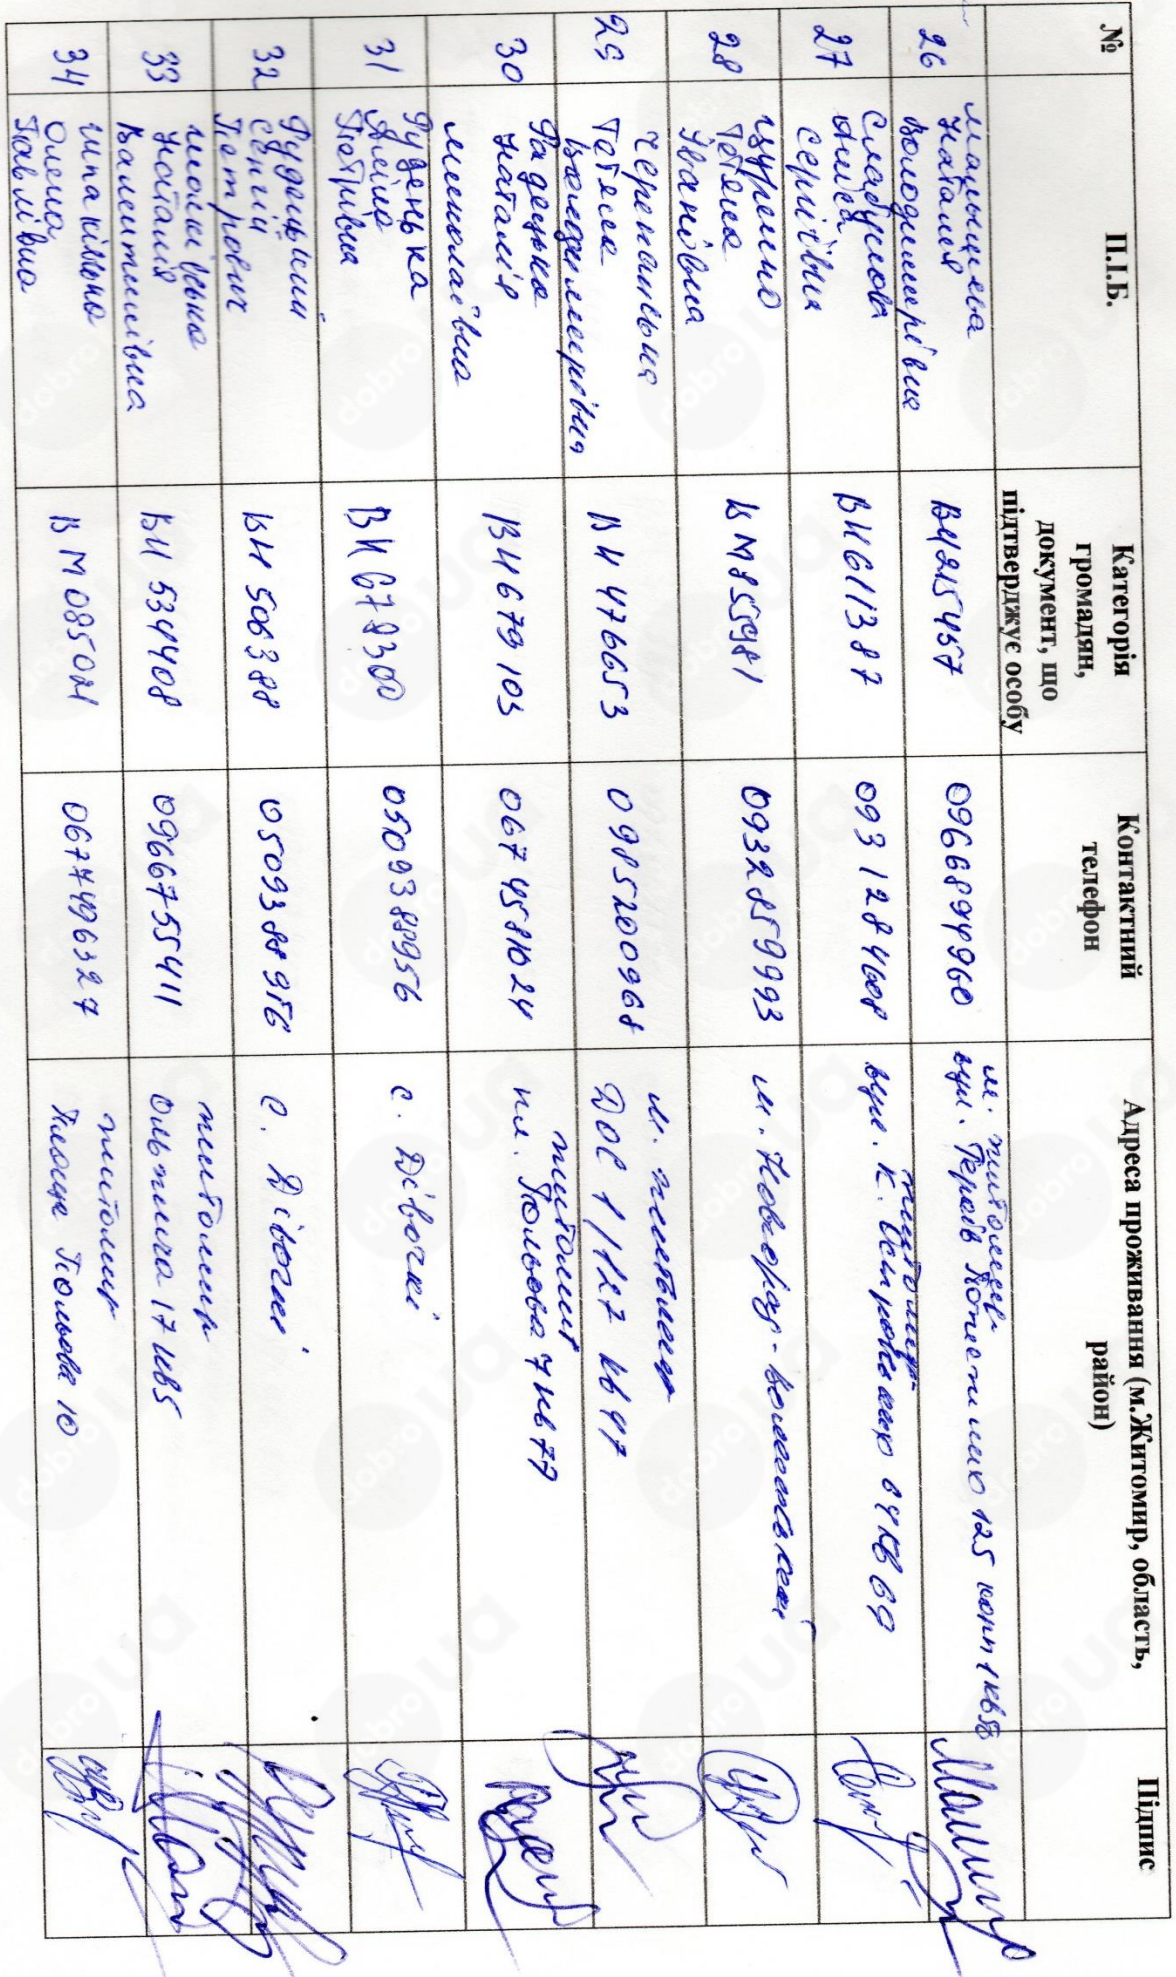 №
П.І.Б.
Категорія
громадян,
документ, що
підтверджує особу
Контактний
телефон
Адреса проживання (м.Житомир, область,
район)
Підпис
26
Наталія
Володимирівна
ВМ215457
0966894960
м. Житомир
вул. Героїв 125 корп 1 кв
27
Аліса
Сергіївна
ВН611387
0931284608
Житомир
вул. К. 64 кв 69
28
Тетяна
Іванівна
ВМ855981
0932859993
м. Новоград-Волинський
29
Тетяна
Володимирівна
ВН476653
0985200968
м. Житомир
ДОС 1/127 кв 47
30
Радецька
Наталія
Миколаївна
ВН679103
0674581024
Житомир
пл. Польова 7 кв 77
31
Рудецька
Аліна
Петрівна
ВН678300
0509388956
с. Дівочки
32
Рудецький
Сергій
Петрович
ВН506388
0509388956
с. Дівочки
33
Наталія
Валентинівна
ВН534408
0966755411
Житомир
Ольжича 17 кв5
34
Олена
Павлівна
ВМ085021
0677496327
Житомир
Площа Польова 10